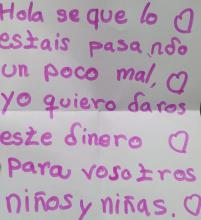 Hola se que lo
estais pasando
un poco mal,
yo quiero daros
este dinero
para vosotros
niños y niñas.